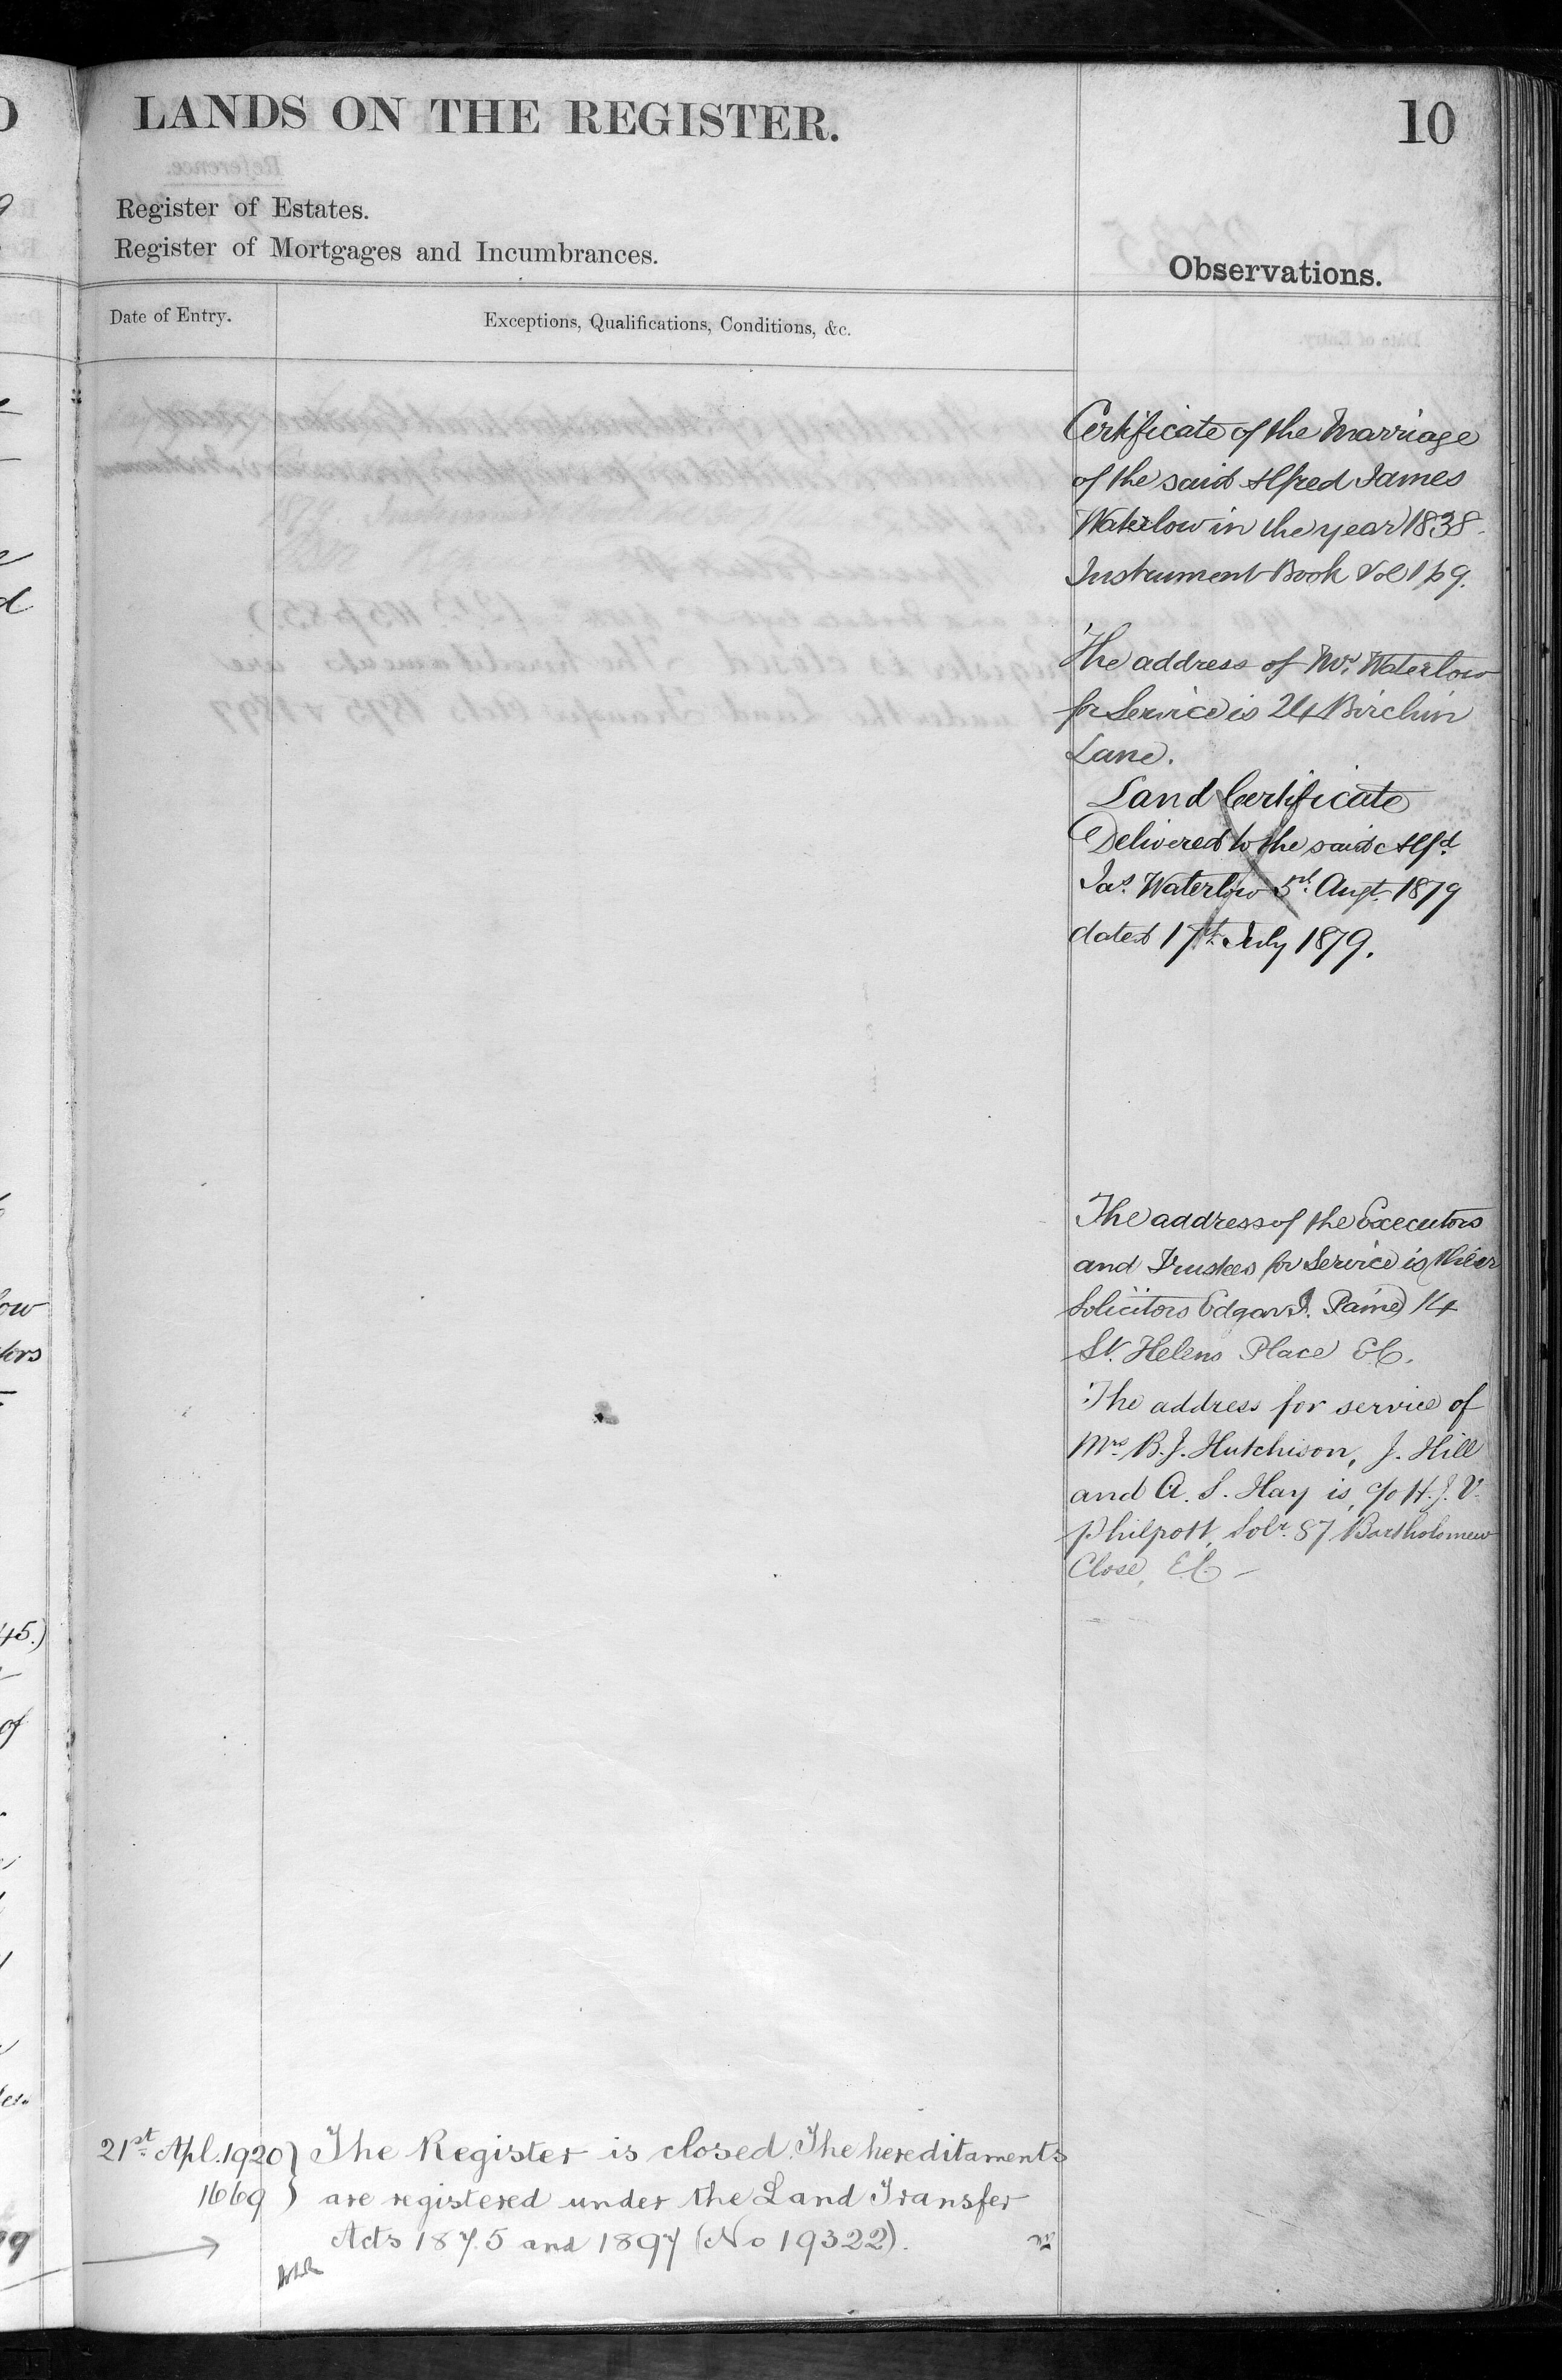 LANDS ON THE REGISTER.
10
Register of Estates.
Register of Mortgages and Incumbrances.
Observations.
Date of Entry.
Exceptions, Qualifications, Conditions, &c.
Certificate of the Marriage
of the said Alfred James
Waterlow in the year 1838.
Instrument Book Vol 1 p 9.
The address of Mr. Waterlow
for Service is 24 Birchin
Lane.
Land Certificate
Delivered to the said Alfd.
Jas. Waterlow 5th Augt. 1879
dated 17th July 1879.
The address of the Executors
and Trustees for Service is their
Solicitors Edgar J. Paine 14
St. Helens Place E.C.
The address for service of
Mrs B. J. Hutchison, J. Hill
and A. S. Hay is, c/o H. J. V.
Philpott, Solr. 87 Bartholomew
Close, E.C. –
21st Apl. 1920 } The Register is closed. The hereditaments
1669 } are registered under the Land Transfer
Acts 1875 and 1897 (No 19322).